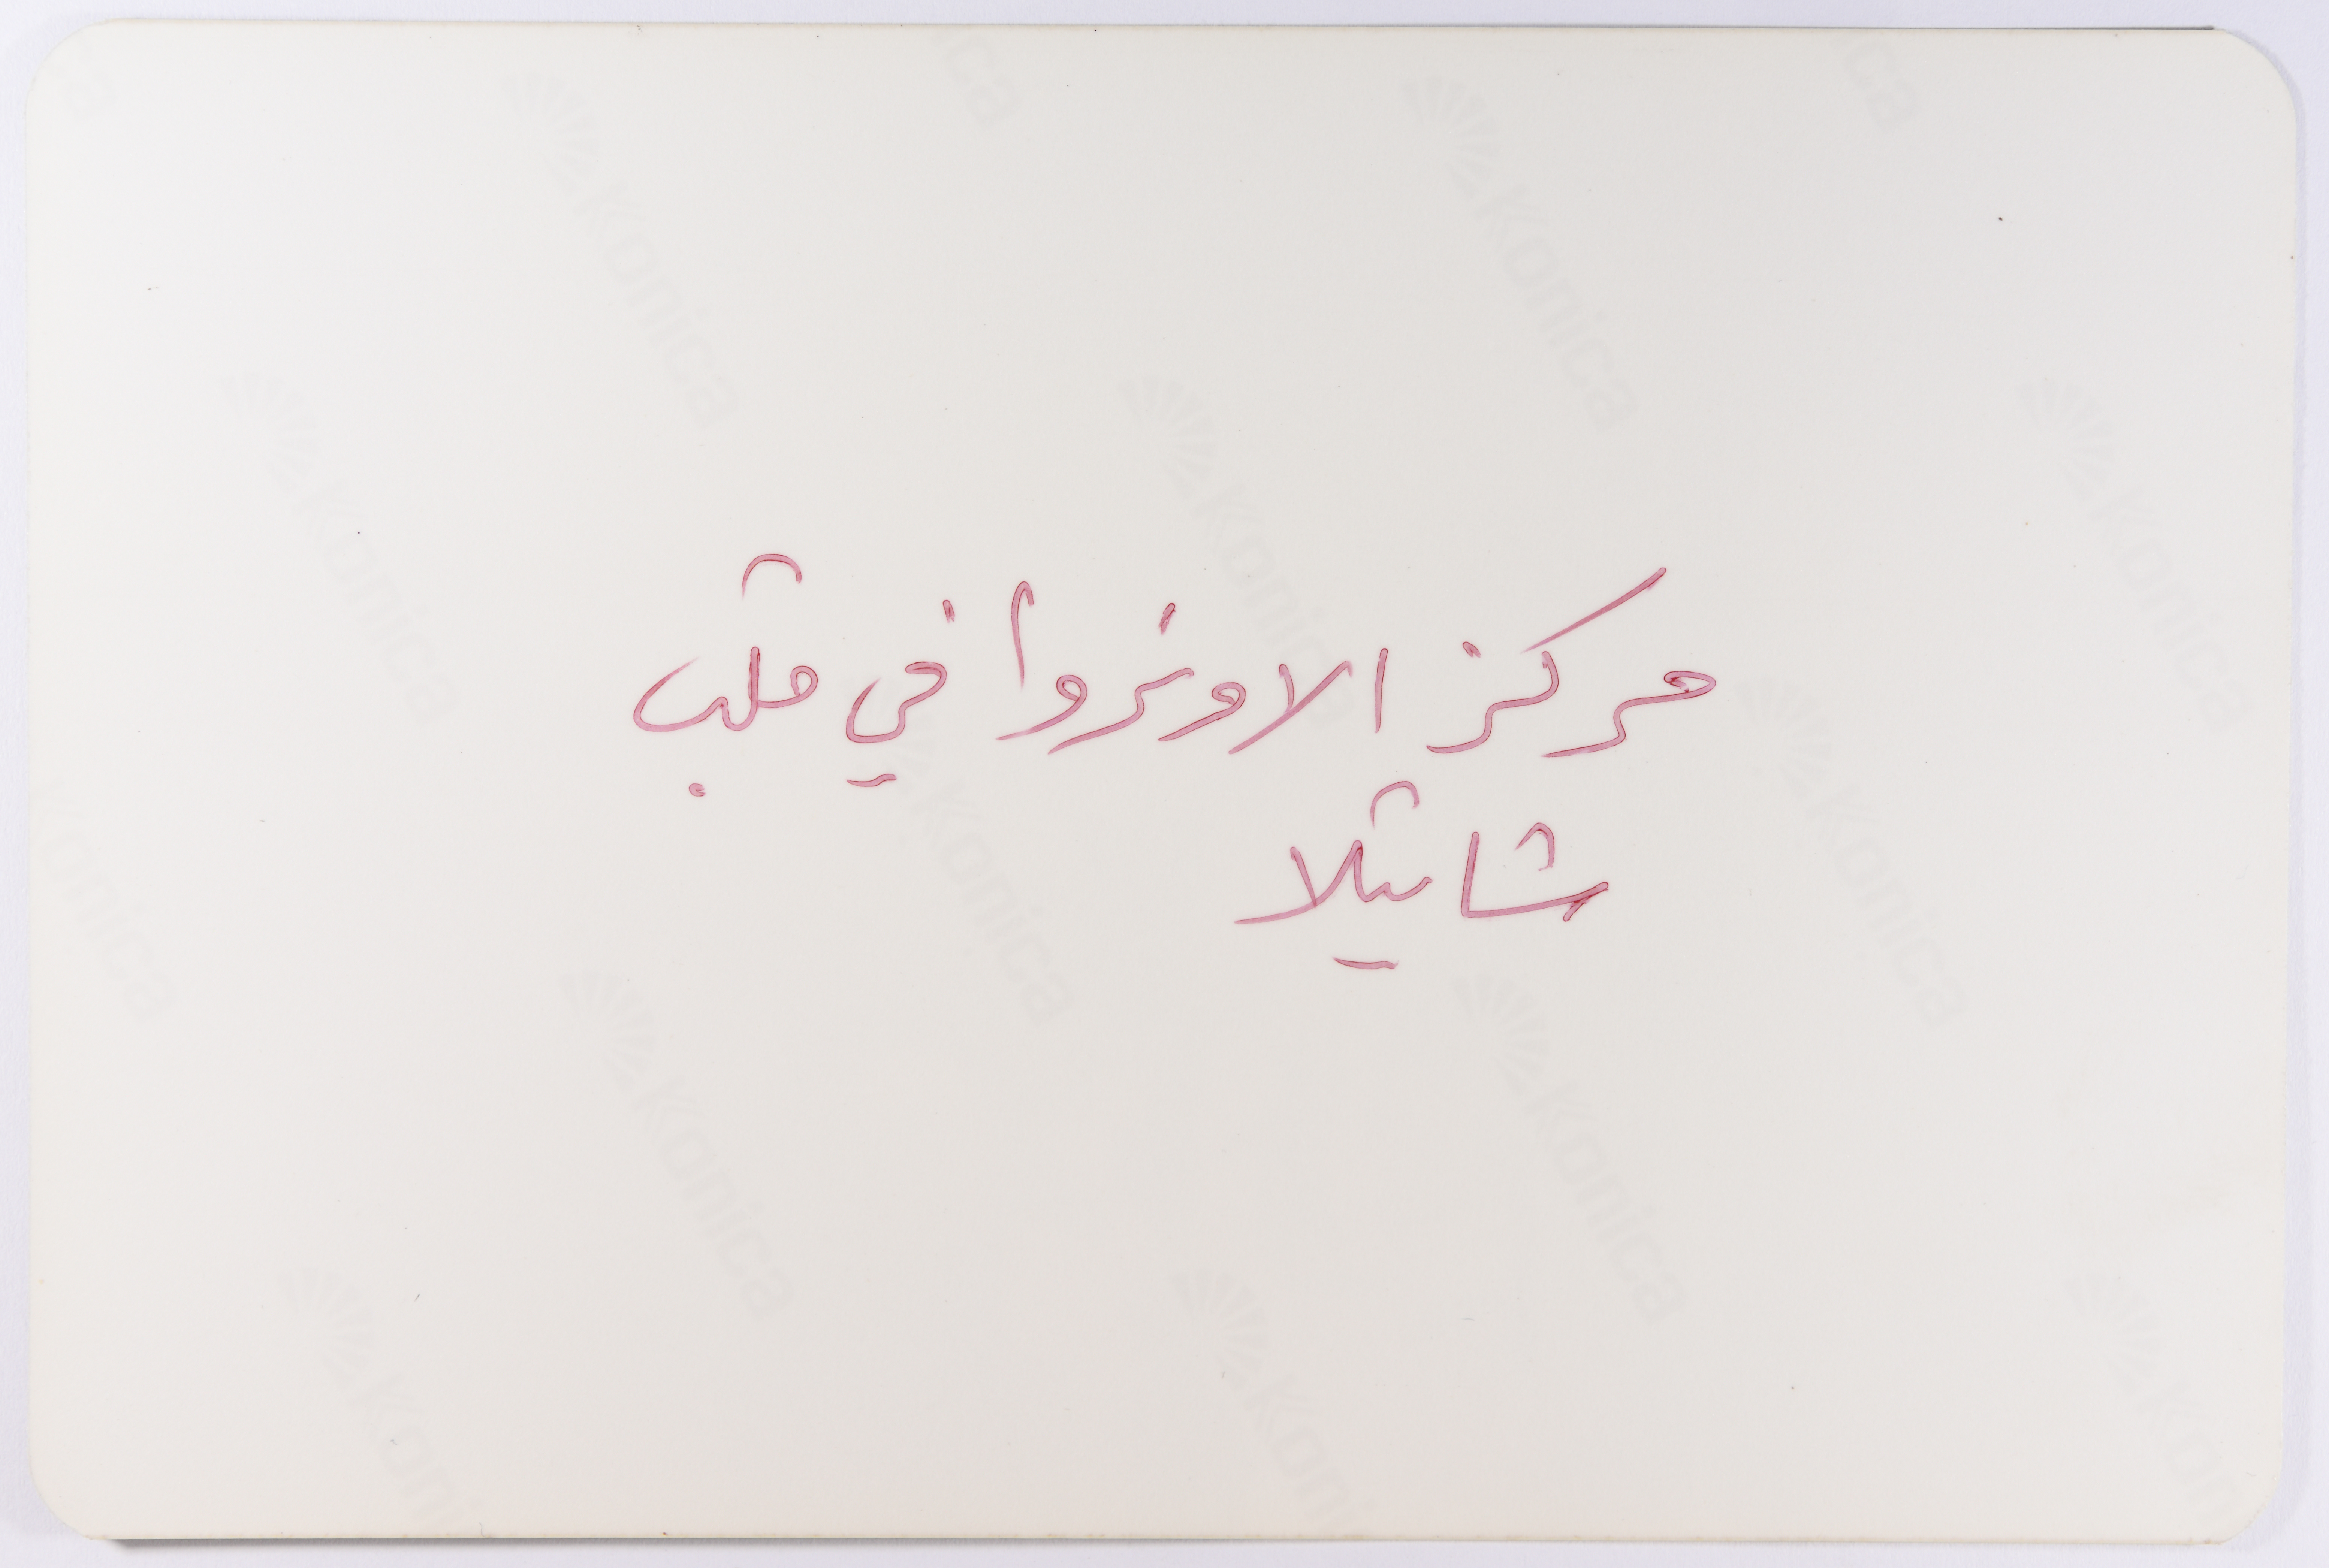 مركز الاونروا في قلب
شاتيلا